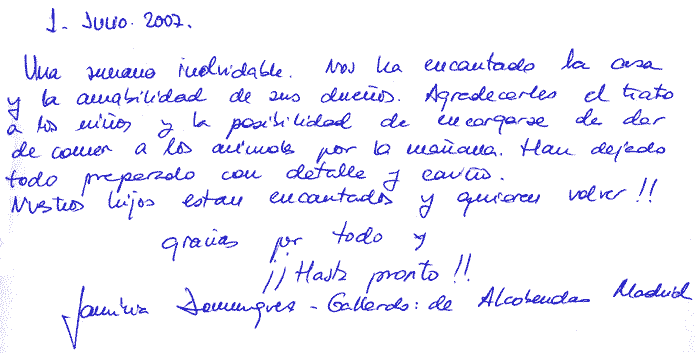 1. Julio. 2007.
Una semana inolvidable. Nos ha encantado la casa
y la amabilidad de sus dueños. Agradecerles el trato
a los niños y la posibilidad de encargarse de dar
de comer a los animales por la mañana. Han dejado
todo preparado con detalle y cariño.
Nuestros hijos estan encantados y quieren volver!!
gracias por todo y
¡¡Hasta pronto!!
Familia Domingues - Gallardo: de Alcobendas Madrid